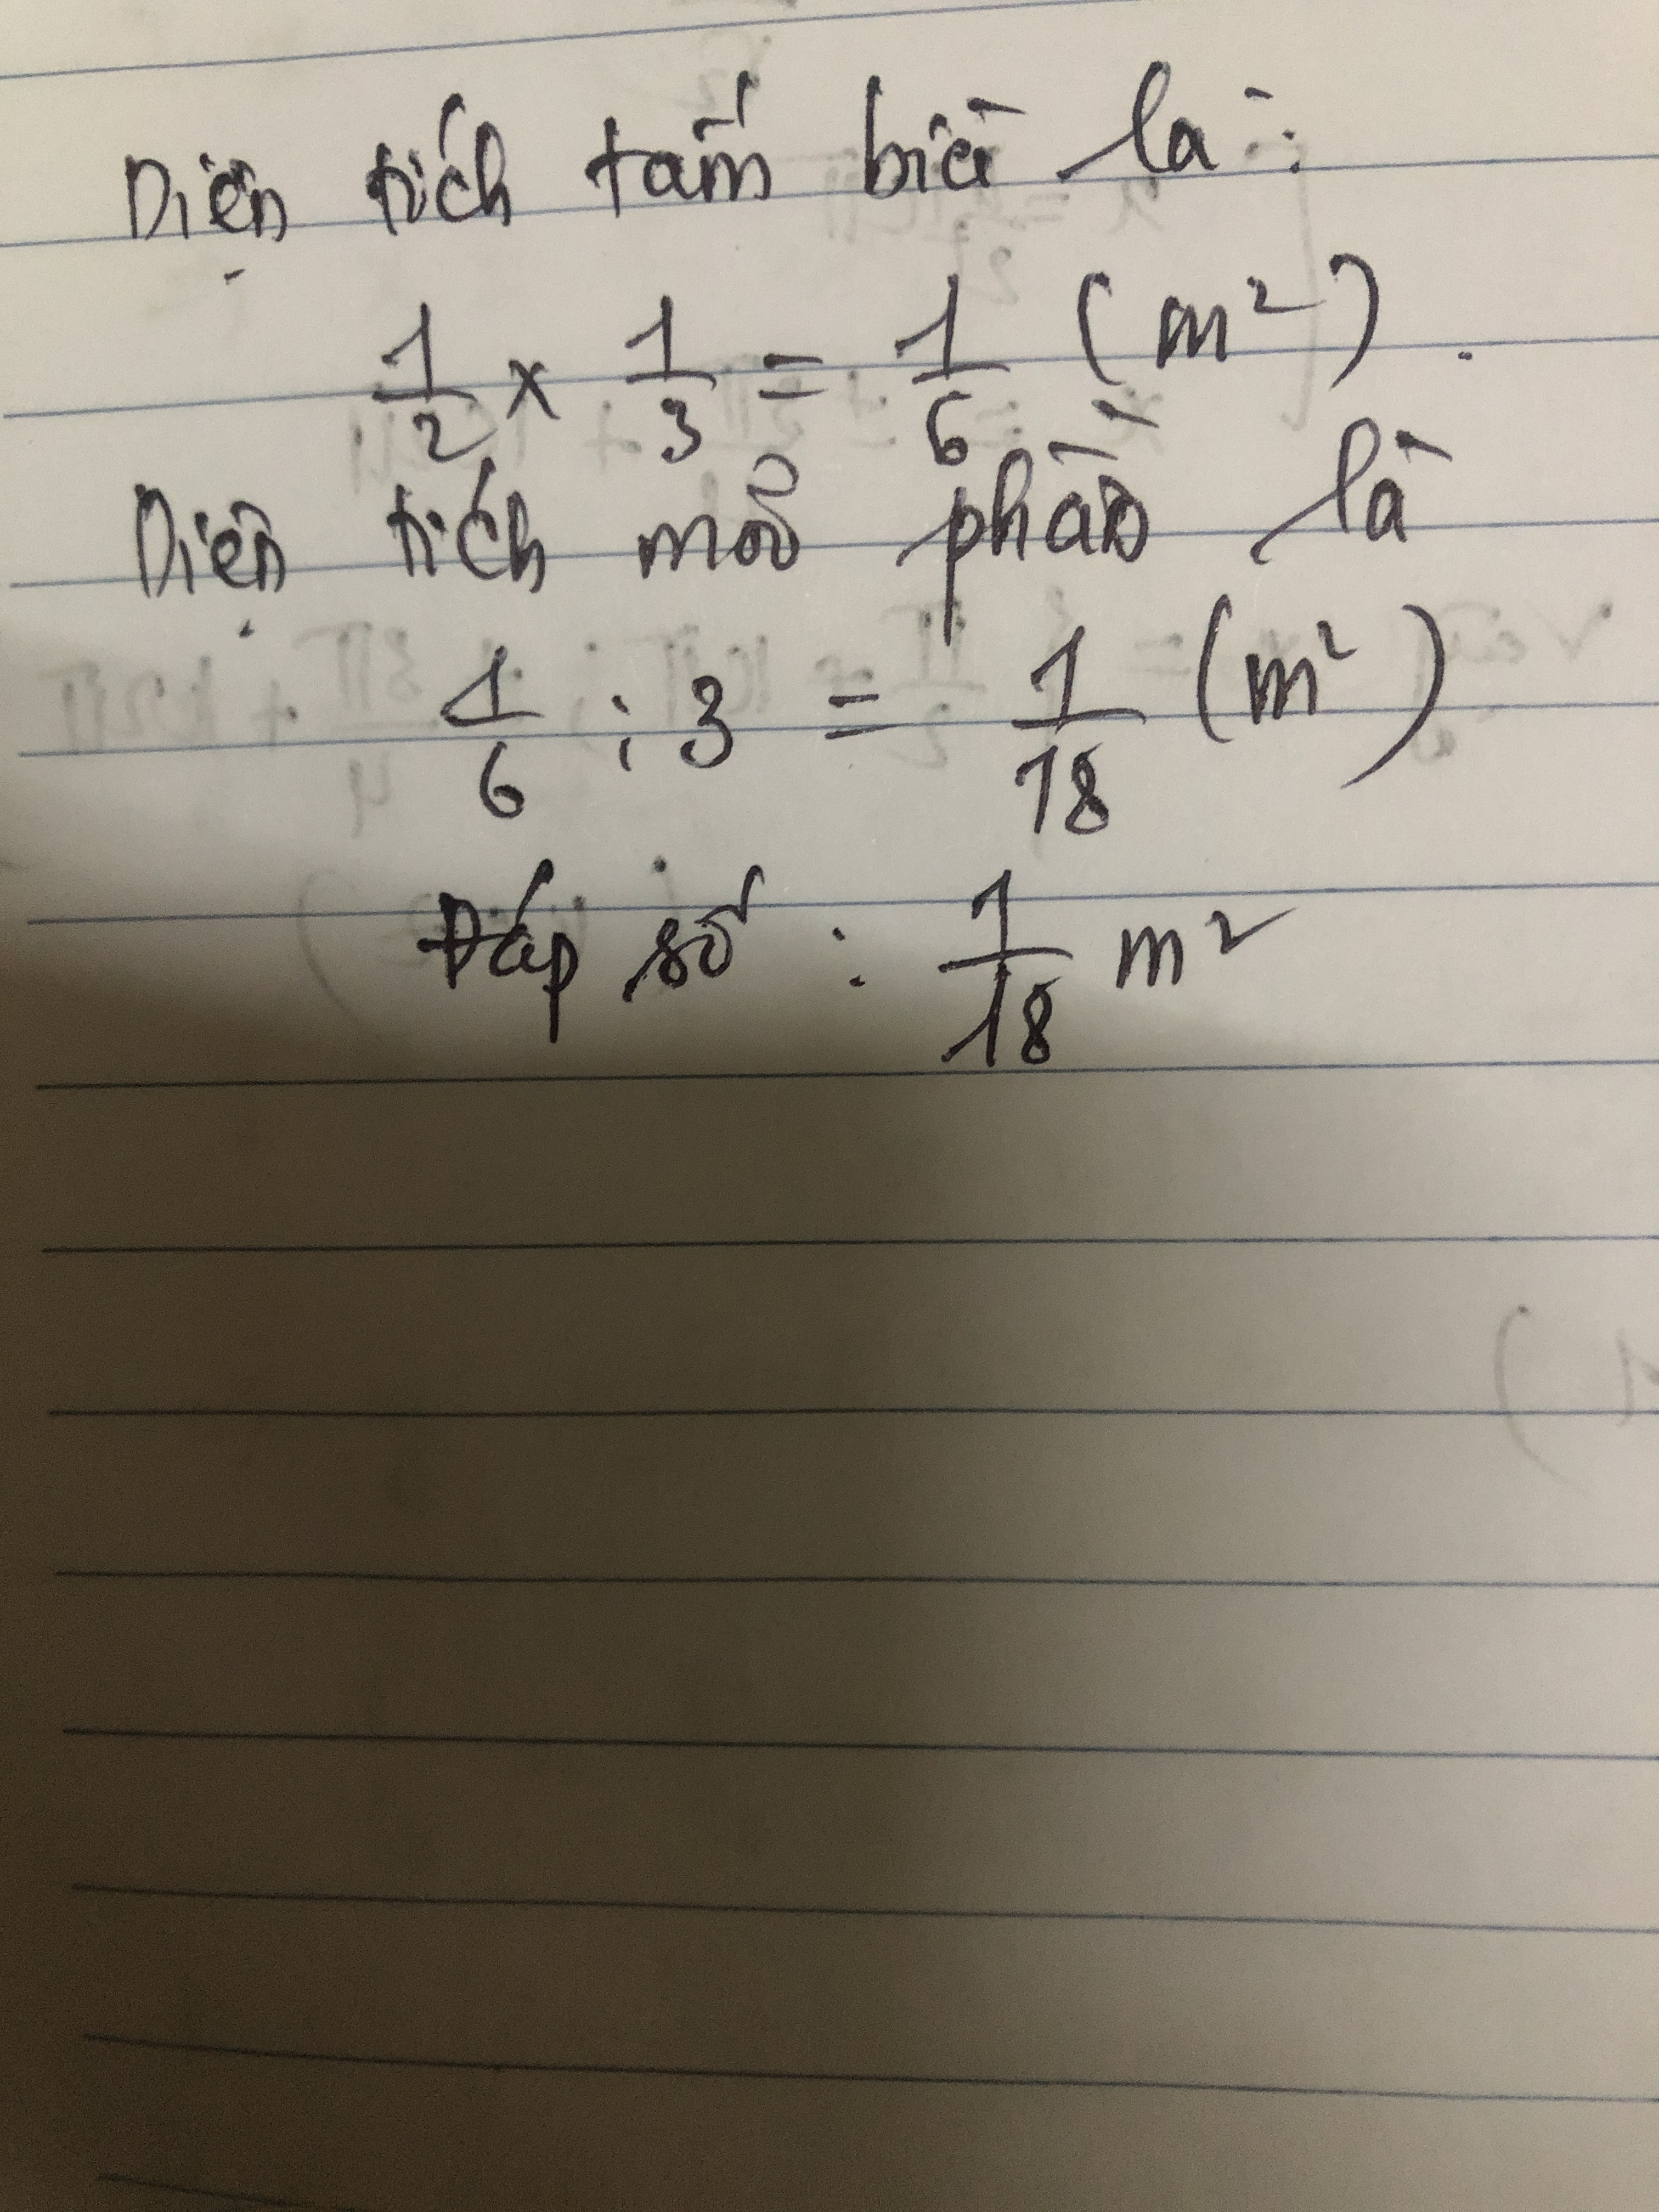 Diện tích tấm bìa là:
1/2 x 1/3 = 1/6 (m²).
Diện tích mỗi phần là
1/6 : 3 = 1/18 (m²)
Đáp số: 1/18 m²